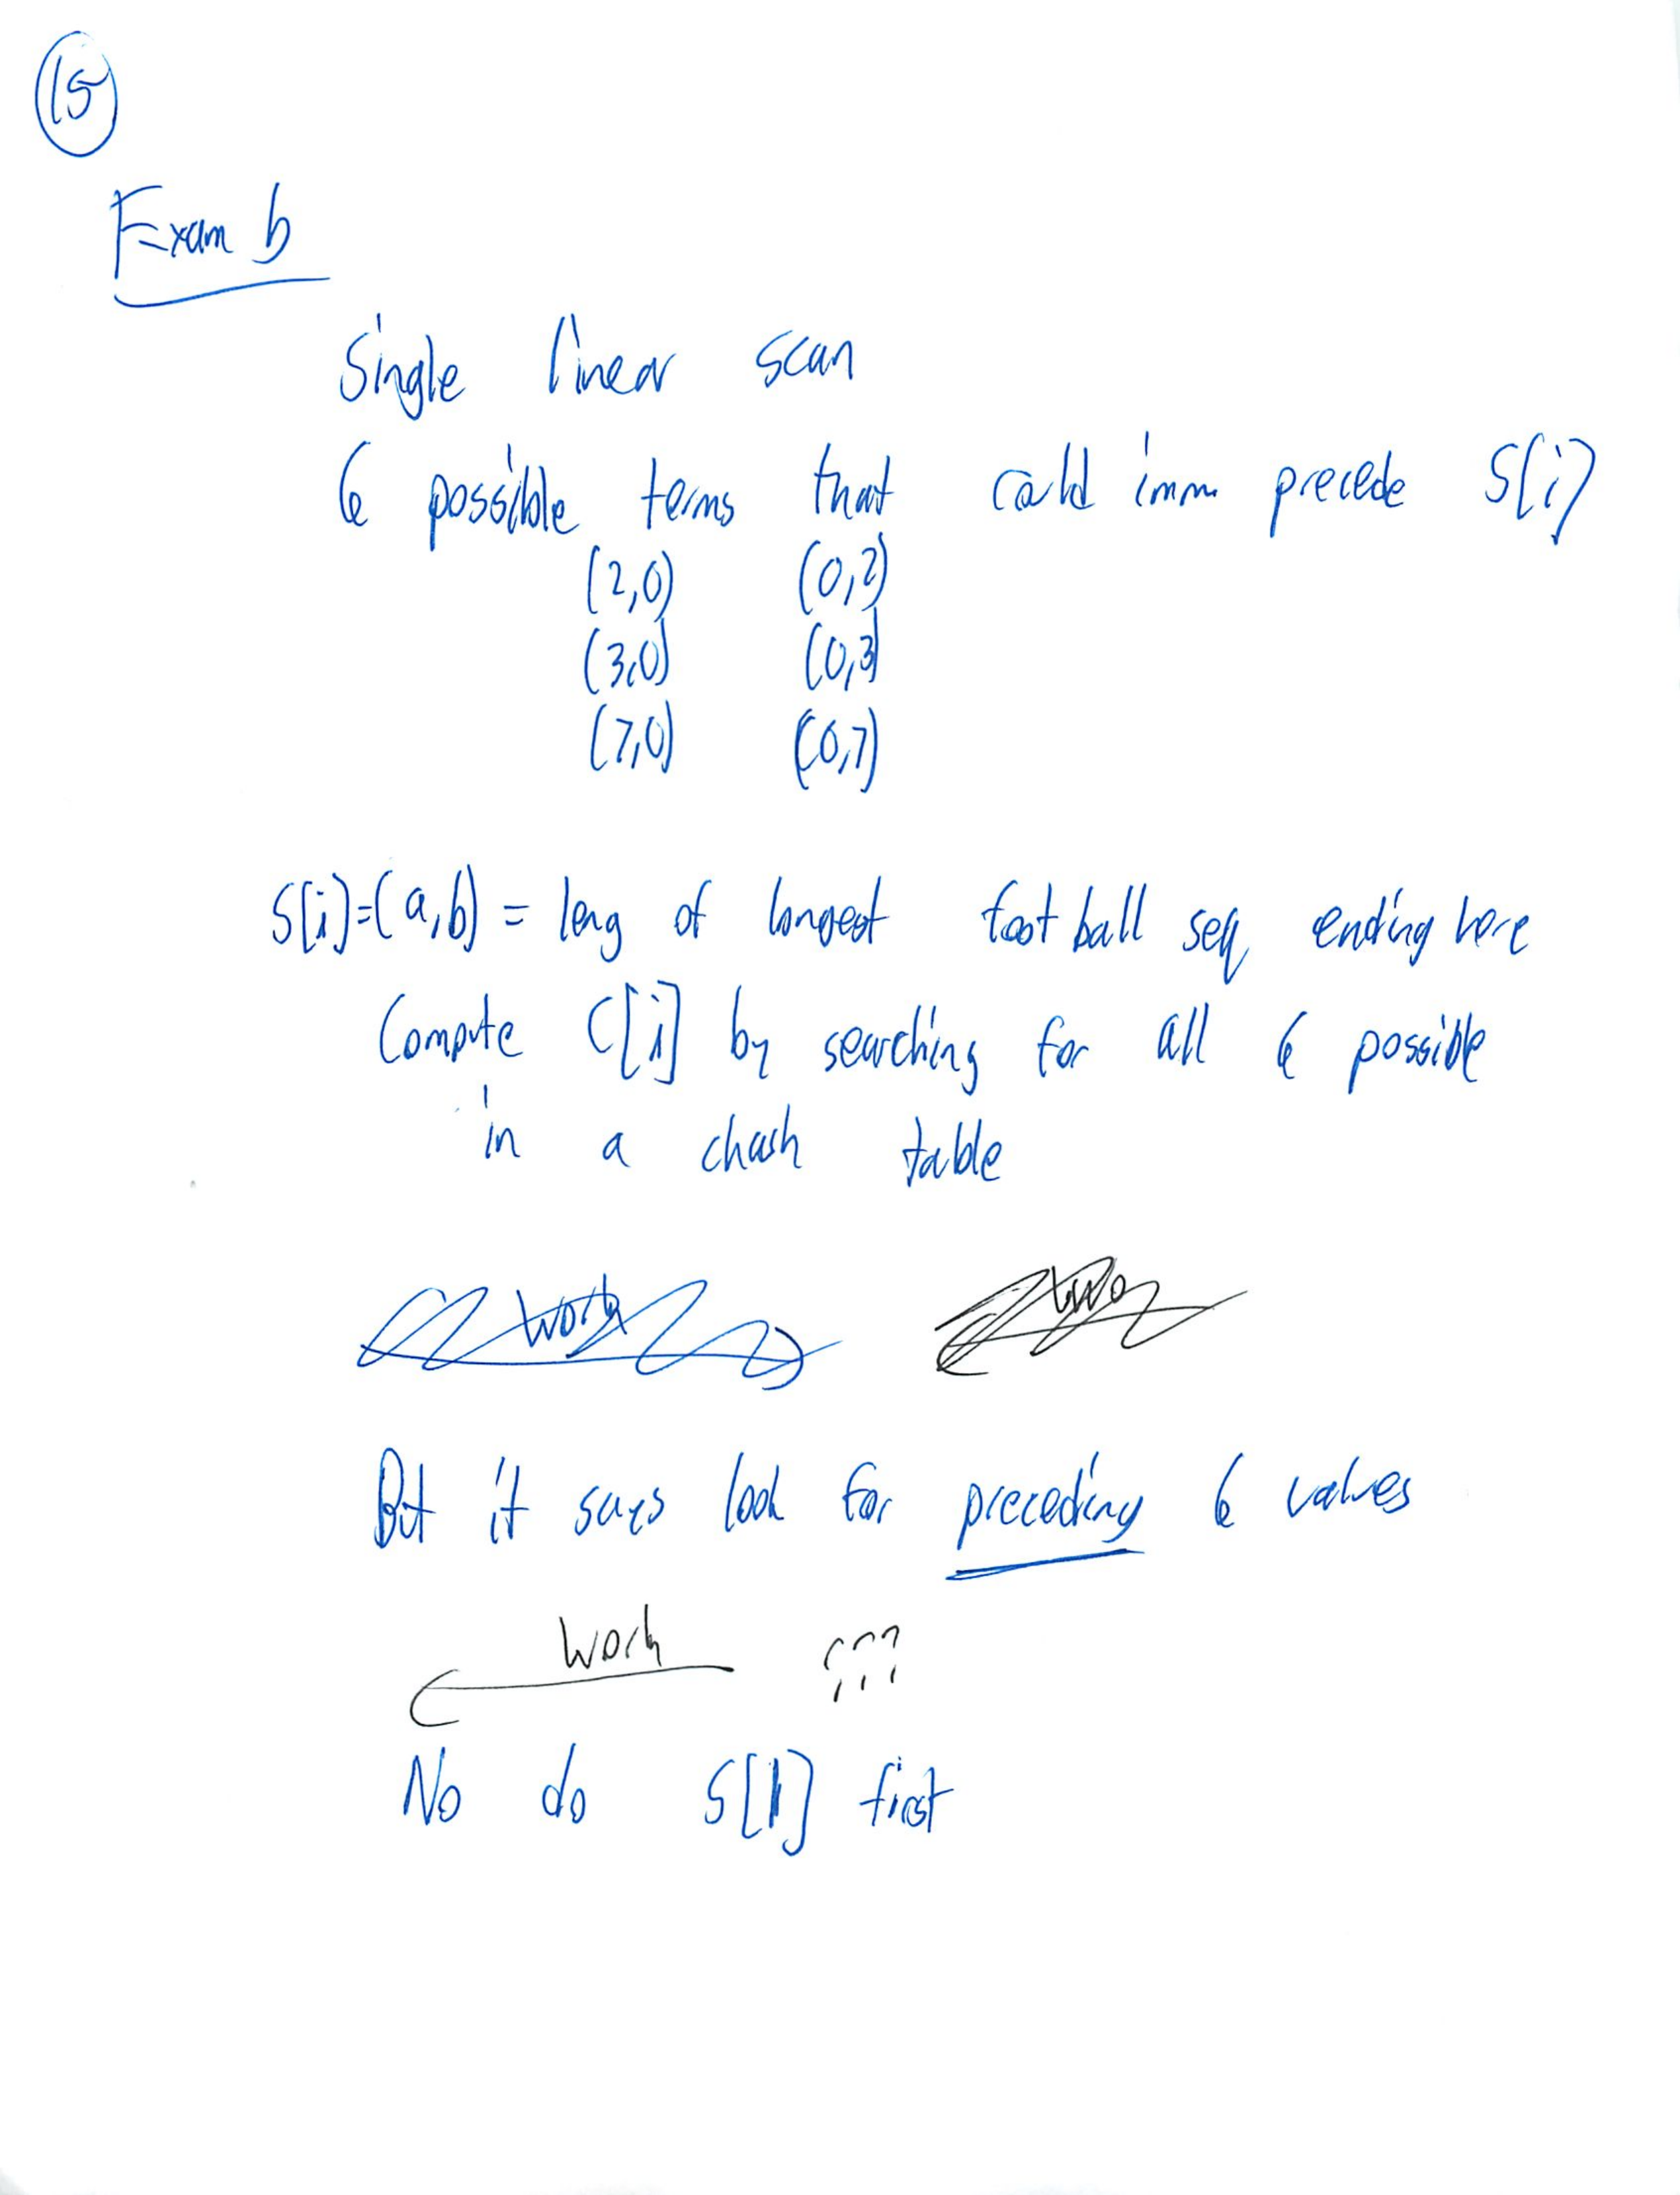 15
Exam b
Single linear scan
6 possible terms that could imm precede S[i]
(2,0) (0,2)
(3,0) (0,3)
(7,0) (0,7)
S[i]=(a,b) = leng of longest foot ball seq ending here
Compute C[i] by searching for all 6 possible
in a chash table
work
But it says look for preceding 6 values
work
No do S[1] first